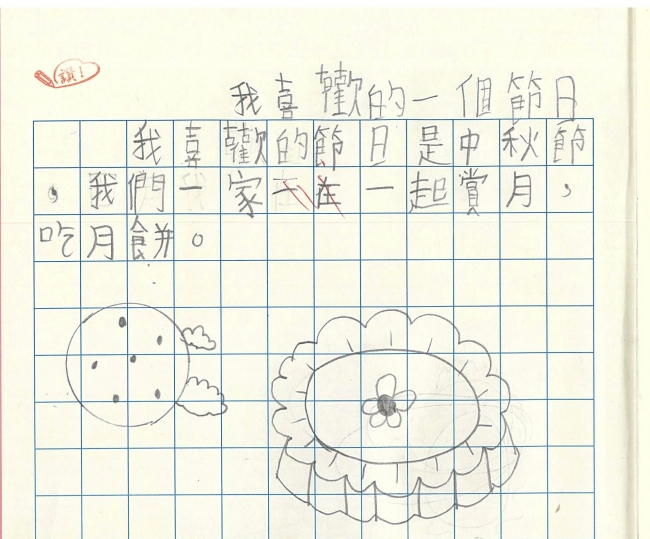 讚！
我喜歡的一個節日
我喜歡的節日是中秋節
，我們一家一在一起賞月，
吃月餅。